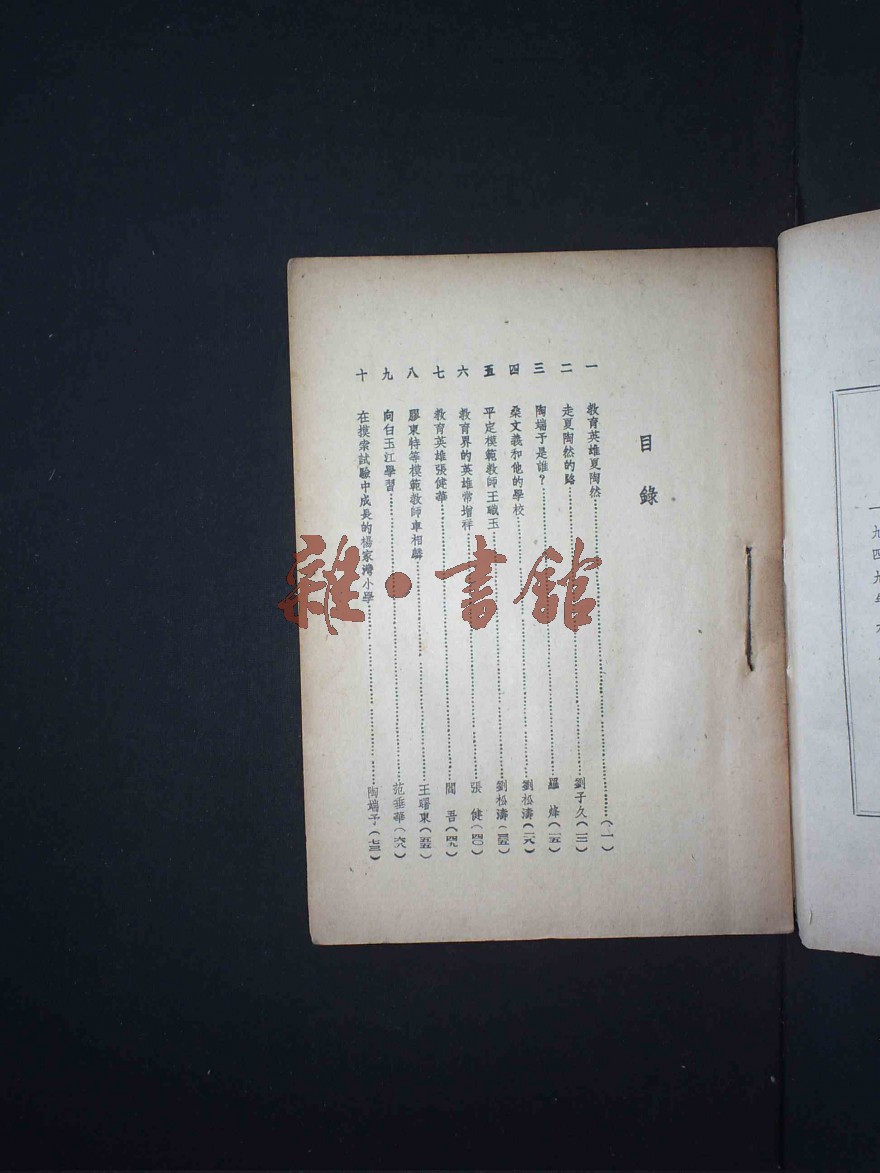 目錄
一 教育英雄夏陶然……(一)
二 走夏陶然的路……劉子久(一三)
三 陶端予是誰？……羅烽(一五)
四 桑文義和他的學校……劉松濤(二九)
五 平定模範教師王職玉……劉松濤(三五)
六 教育界的英雄常增祥……張健(四〇)
七 教育英雄張健華……閻吾(四九)
八 膠東特等模範教師車相麟……王曙東(五五)
九 向白玉江學習……范垂華(六八)
十 在摸索試驗中成長的楊家灣小學……陶端予(七三)
一九四九年
雜·書館